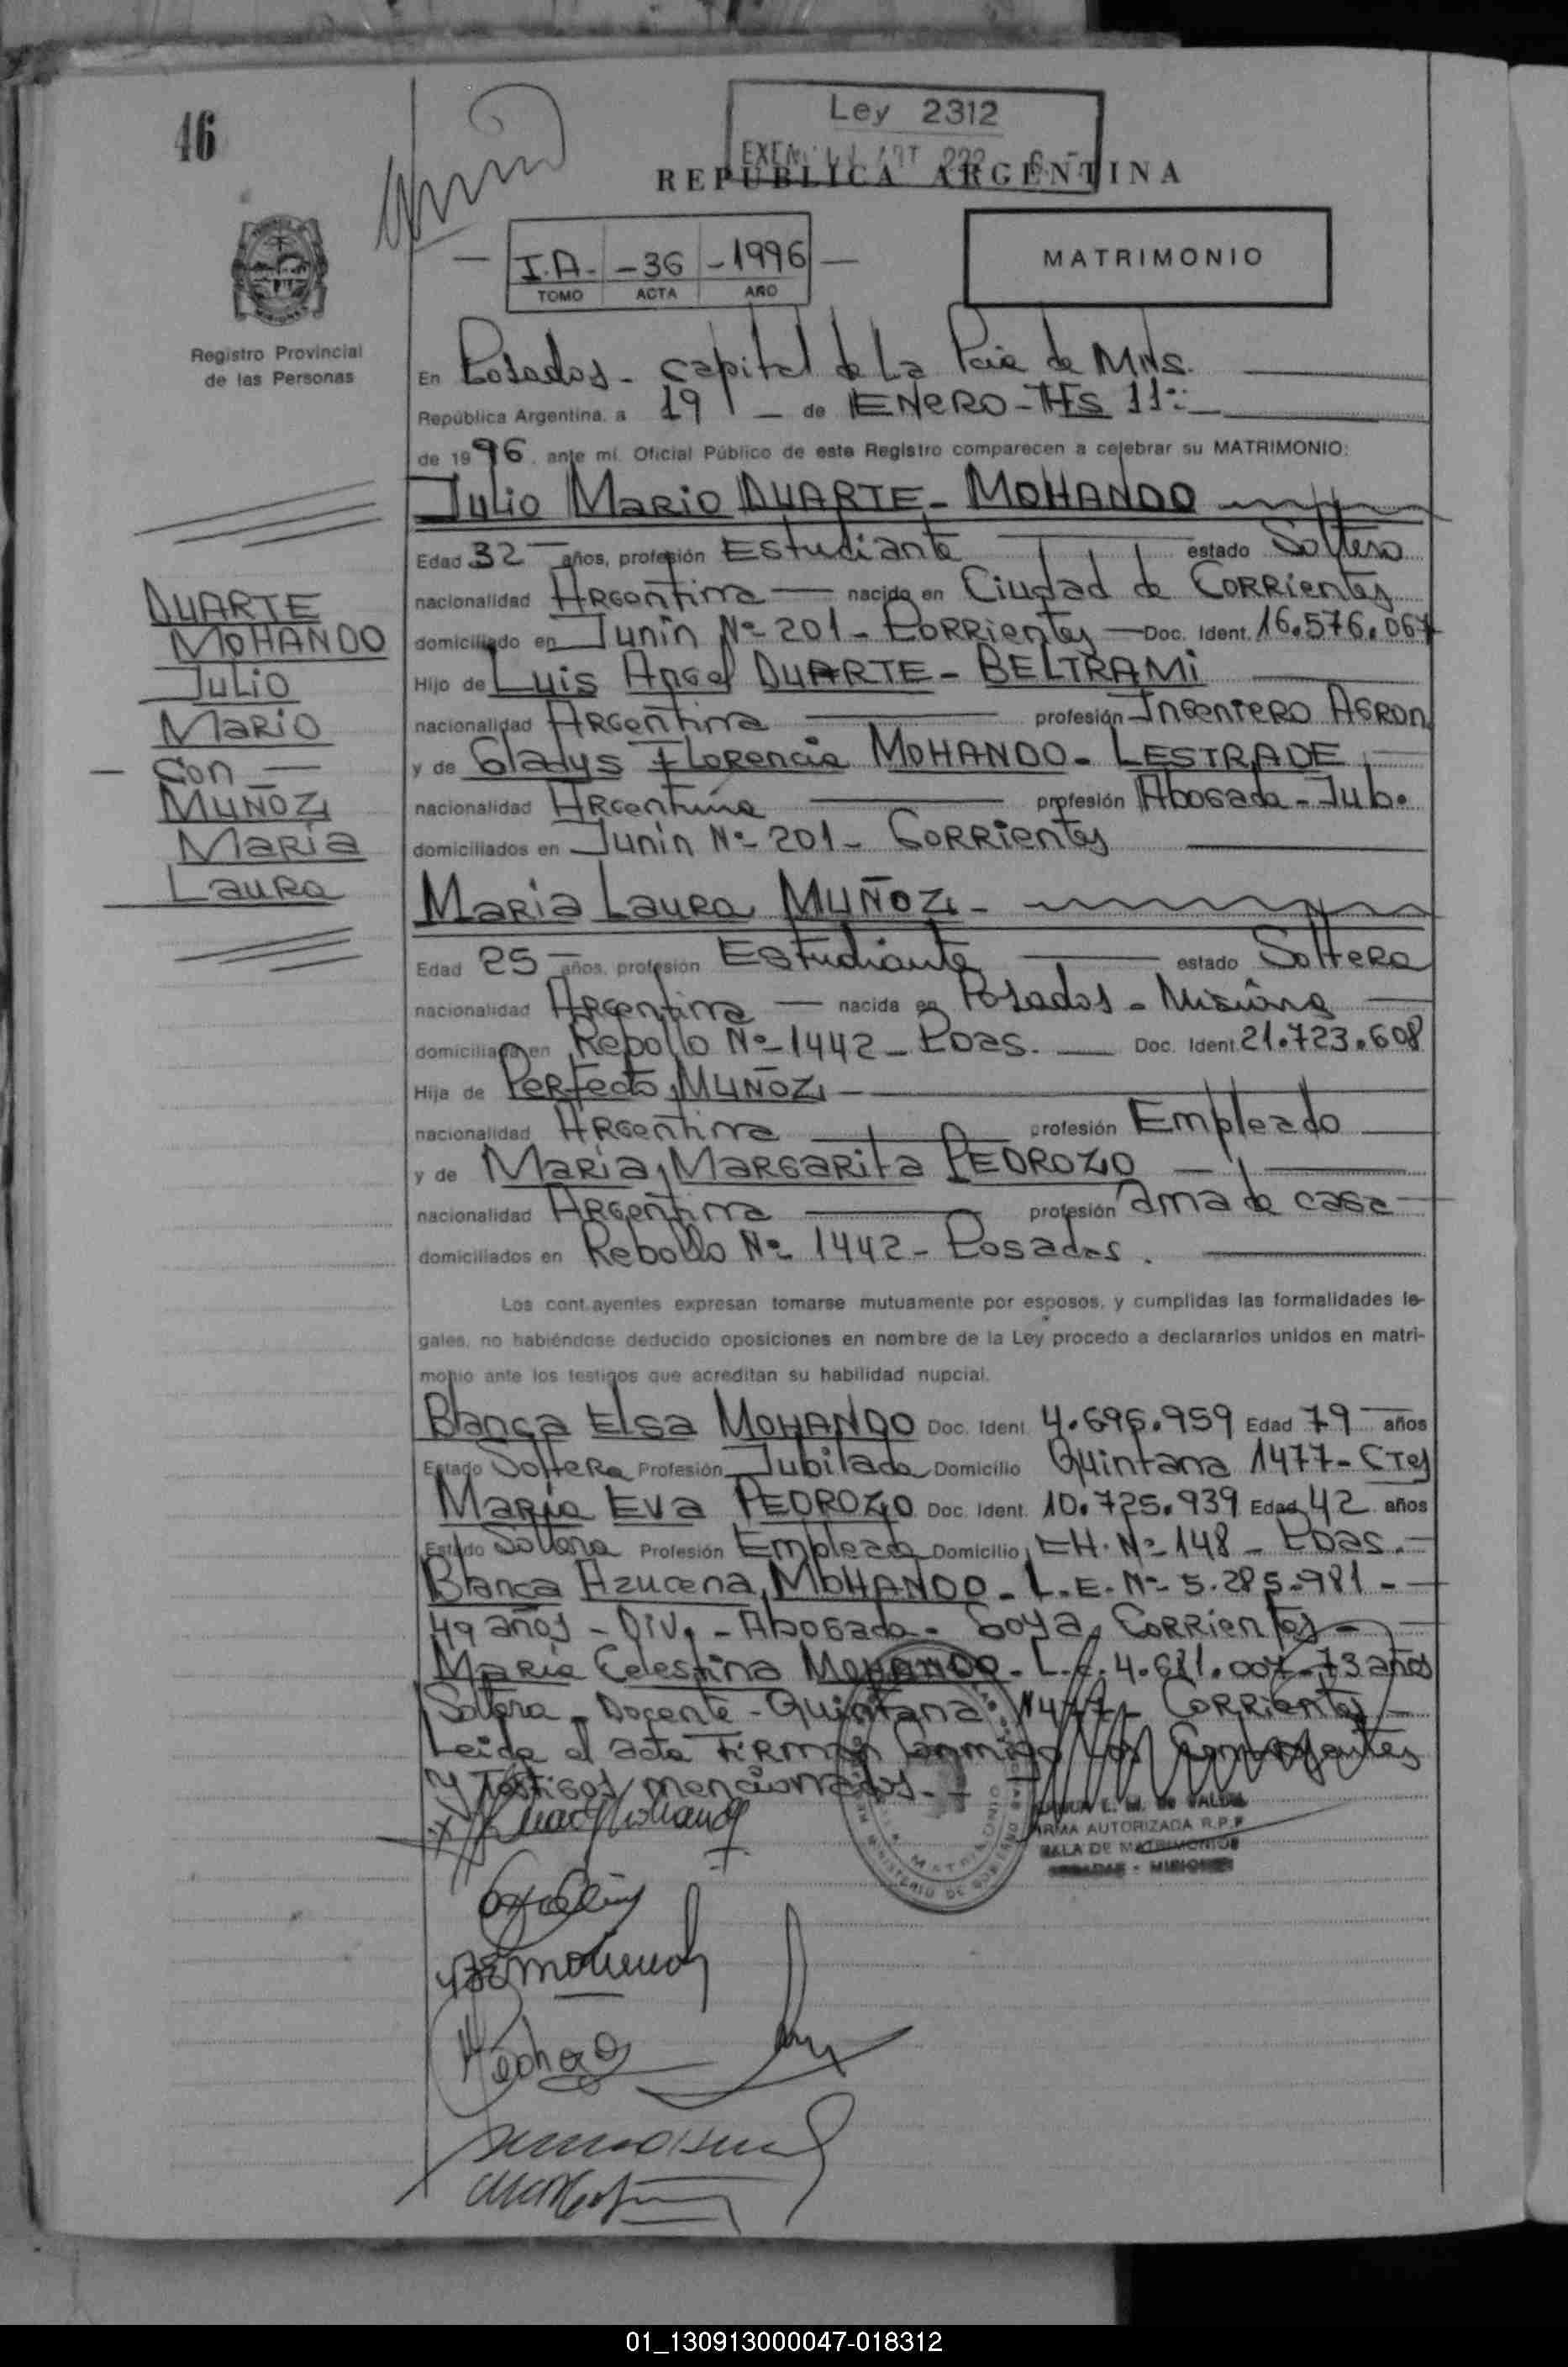 46
Ley 2312
REPUBLICA ARGENTINA
I.A. - 36 - 1996
TOMO ACTA AÑO
MATRIMONIO
Registro Provincial
de las Personas
En Posadas - Capital de La Pcia de Mns.
República Argentina, a 19 - de ENERO - Hs 11:
de 1996, ante mí, Oficial Público de este Registro comparecen a celebrar su MATRIMONIO:
Julio Mario DUARTE - MOHANDO
Edad 32 años, profesión Estudiante estado Soltero
nacionalidad Argentina nacido en Ciudad de Corrientes
domiciliado en Junin Nº 201 - Corrientes - Doc. Ident. 16.576.067
Hijo de Luis Angel DUARTE - BELTRAMI
nacionalidad Argentina profesión Ingeniero Agron.
y de Gladys Florencia MOHANDO - LESTRADE
nacionalidad Argentina profesión Abogada - Jub.
domiciliados en Junin Nº 201 - Corrientes
DUARTE
MOHANDO
Julio
Mario
- Con -
MUÑOZ
Maria
Laura
Maria Laura MUÑOZ -
Edad 25 años, profesión Estudiante estado Soltera
nacionalidad Argentina - nacida en Posadas - Misiones
domiciliada en Rebollo Nº 1442 - Pdas. Doc. Ident. 21.723.608
Hija de Perfecto MUÑOZ
nacionalidad Argentina profesión Empleado
y de Maria Margarita PEDROZO
nacionalidad Argentina profesión ama de casa
domiciliados en Rebollo Nº 1442 - Posadas.
Los contrayentes expresan tomarse mutuamente por esposos, y cumplidas las formalidades le-
gales, no habiéndose deducido oposiciones en nombre de la Ley procedo a declararlos unidos en matri-
monio ante los testigos que acreditan su habilidad nupcial.
Blanca Elsa MOHANDO Doc. Ident. 4.696.959 Edad 79 años
Estado Soltera Profesión Jubilada Domicilio Quintana 1477 - Ctes
Maria Eva PEDROZO Doc. Ident. 10.725.939 Edad 42 años
Estado Soltera Profesión Empleada Domicilio CH. Nº 148 - Pdas. -
Blanca Azucena MOHANDO - L.E. Nº 5.285.981 -
49 años - Div. - Abogada - Goya, Corrientes -
Maria Celestina MOHANDO - L.C. 4.611.007 - 73 años
Soltera - Docente - Quintana 1477 - Corrientes -
Leida el acta Firman Conmigo los Contrayentes
y Testigos mencionados. -
FIRMA AUTORIZADA R.P.P
SALA DE MATRIMONIOS
POSADAS - MISIONES
01_130913000047-018312